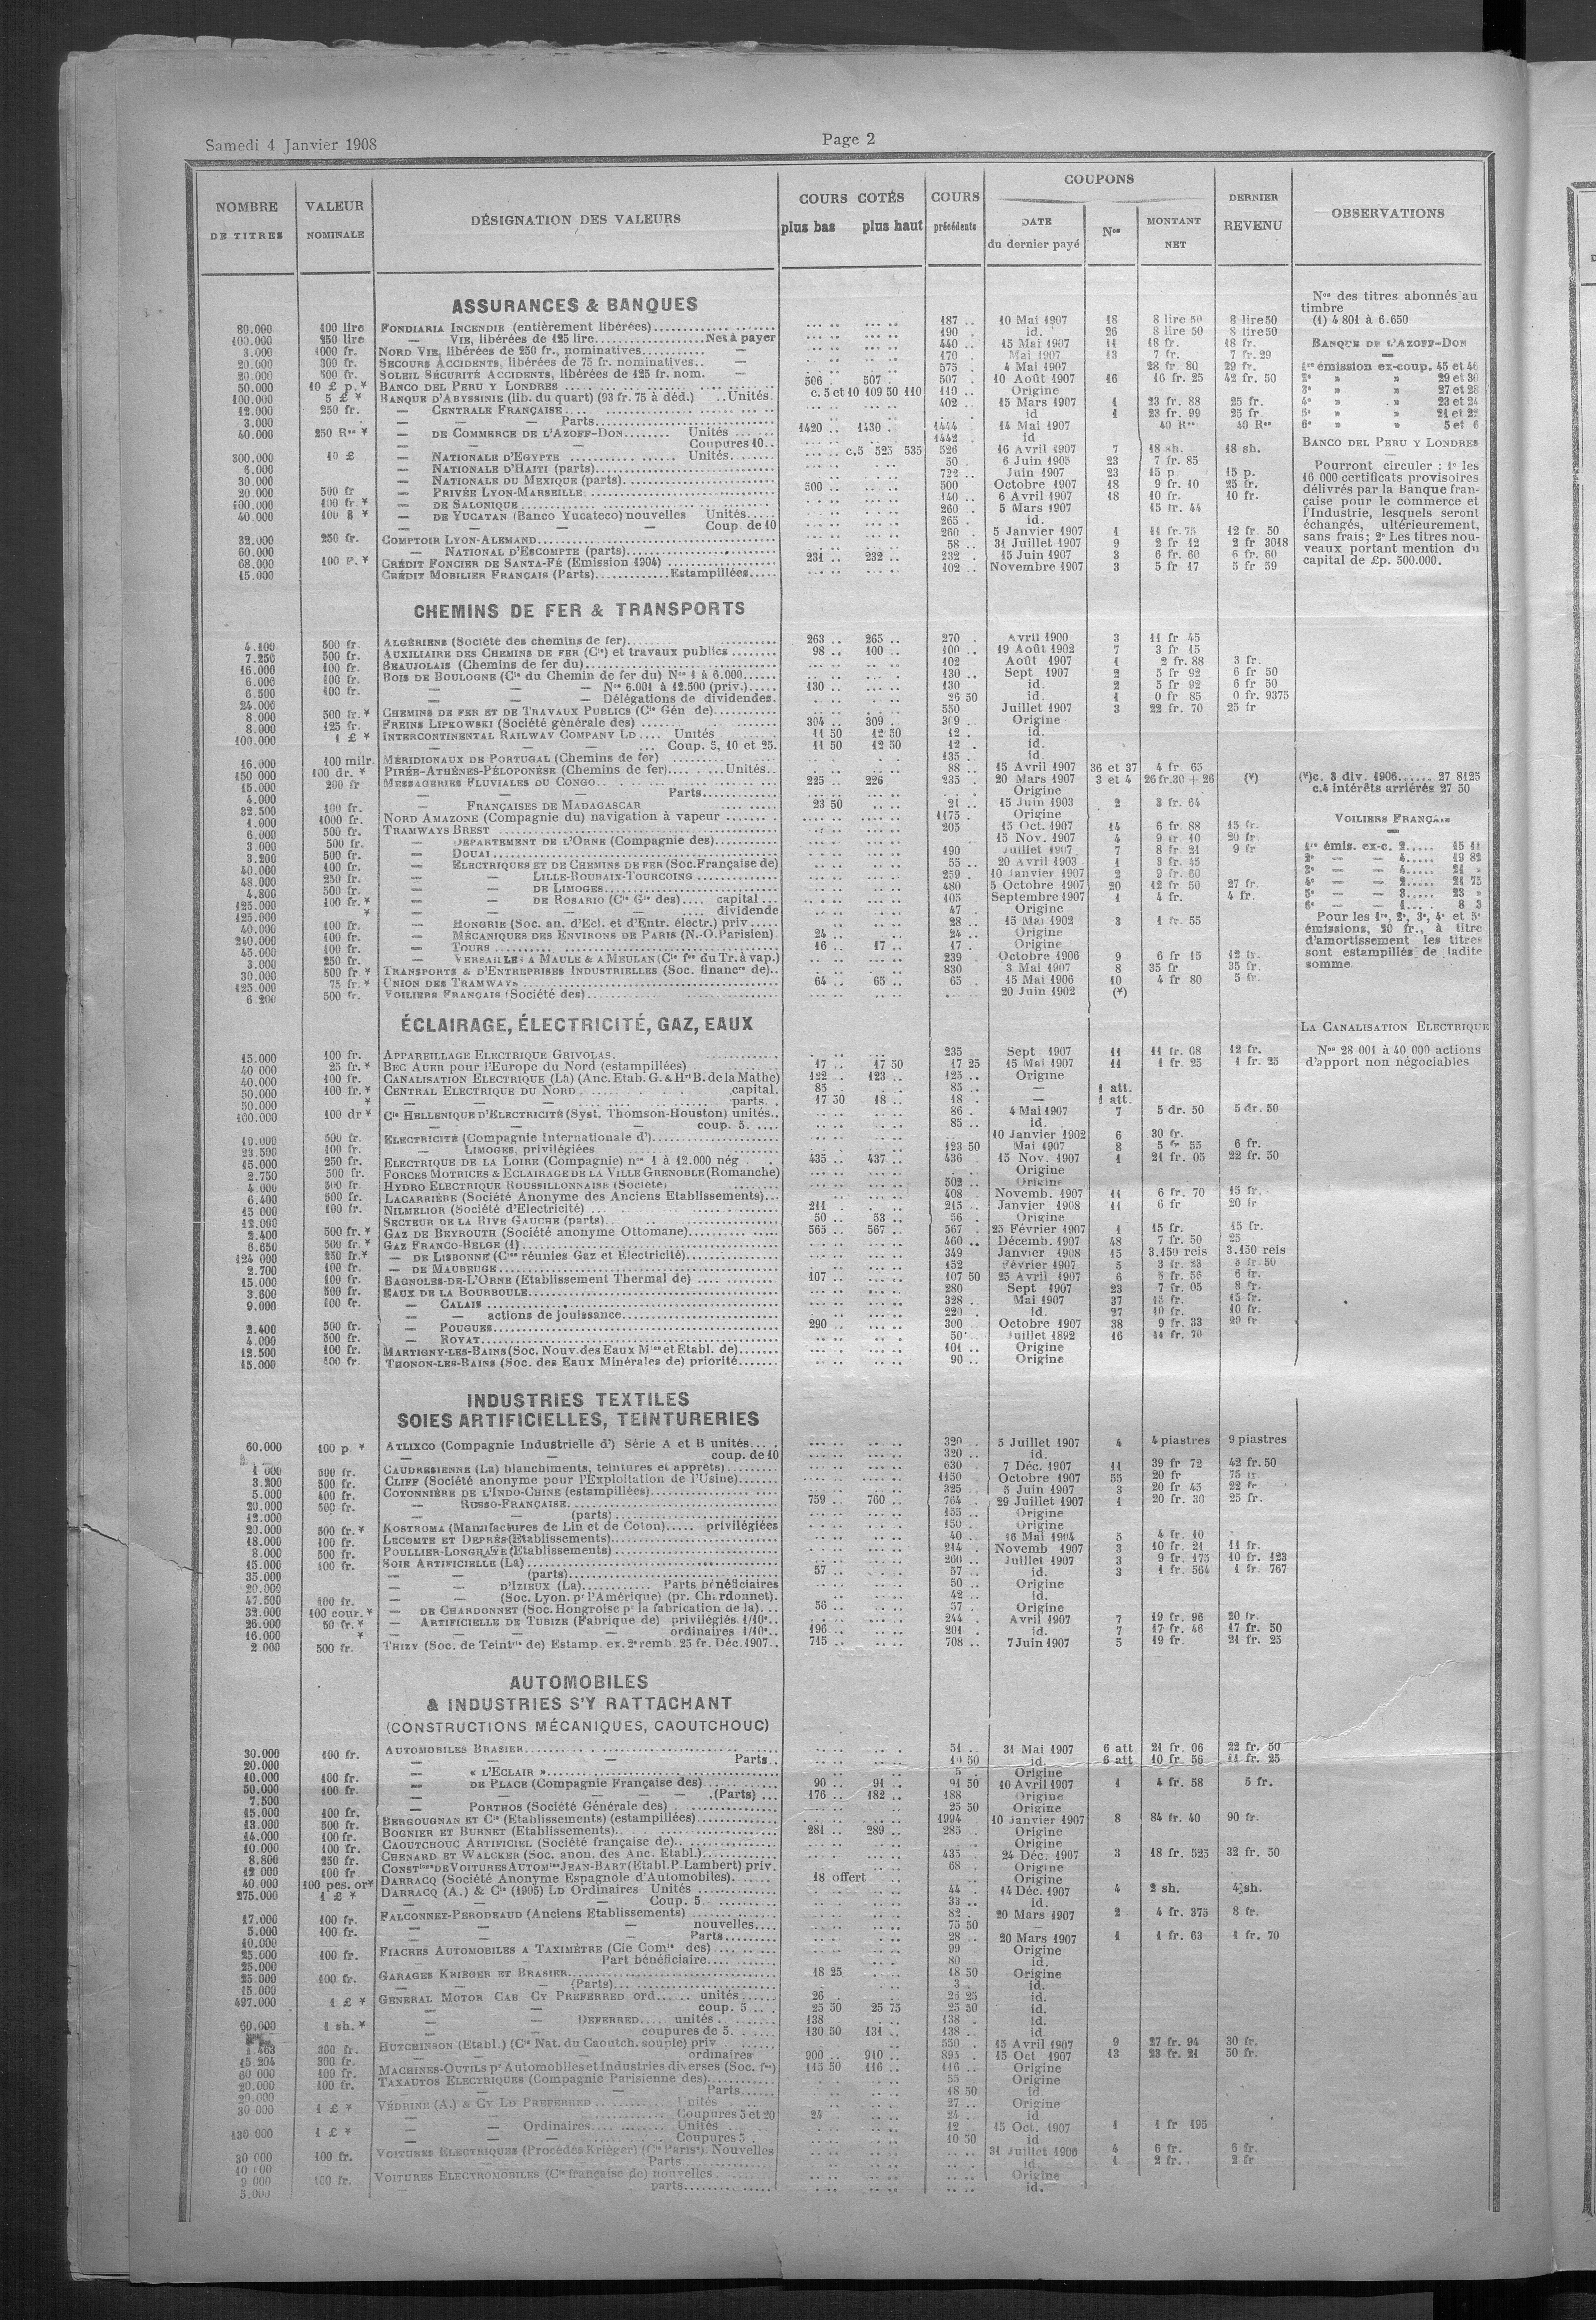 Samedi 4 Janvier 1908
Page 2
NOMBRE DE TITRES | VALEUR NOMINALE | DÉSIGNATION DES VALEURS | COURS COTÉS plus bas plus haut | COURS précédents | COUPONS DATE du dernier payé | Nos | MONTANT NET | DERNIER REVENU | OBSERVATIONS
ASSURANCES & BANQUES
80.000 100 lire FONDIARIA INCENDIE (entièrement libérées) 187 10 Mai 1907 18 8 lire 50 8 lire 50
100.000 250 lire — VIE, libérées de 125 lire Net à payer 190 id. 26 8 lire 50 8 lire 50
3.000 1000 fr. NORD VIE, libérées de 250 fr., nominatives — 440 15 Mai 1907 11 18 fr. 18 fr.
20.000 300 fr. SECOURS ACCIDENTS, libérées de 75 fr. nominatives — 170 Mai 1907 13 7 fr. 7 fr. 29
20.000 500 fr. SOLEIL SÉCURITÉ ACCIDENTS, libérées de 125 fr. nom. — 575 4 Mai 1907 28 fr 80 29 fr.
50.000 10 £ p.* BANCO DEL PERU Y LONDRES 506 507 507 10 Août 1907 16 16 fr. 25 42 fr. 50
100.000 5 £ * BANQUE D'ABYSSINIE (lib. du quart) (93 fr. 75 à déd.) Unités c. 5 et 10 109 50 110 110 Origine
12.000 250 fr. — CENTRALE FRANÇAISE 402 15 Mars 1907 1 23 fr. 88 25 fr.
3.000 — — Parts id 1 23 fr. 99 25 fr.
40.000 250 Res * — DE COMMERCE DE L'AZOFF-DON Unités 1420 1430 1444 14 Mai 1907 40 Res 40 Res
— — Coupures 10 1442 id
300.000 10 £ — NATIONALE D'EGYPTE Unités c.5 525 535 526 16 Avril 1907 7 18 sh. 18 sh.
6.000 — NATIONALE D'HAITI (parts) 50 6 Juin 1905 23 7 fr. 85
30.000 — NATIONALE DU MEXIQUE (parts) 722 Juin 1907 23 15 p. 15 p.
20.000 500 fr — PRIVÉE LYON-MARSEILLE 500 500 Octobre 1907 18 9 fr. 10 25 fr.
100.000 100 fr * — DE SALONIQUE 140 6 Avril 1907 18 10 fr. 10 fr.
40.000 100 $ * — DE YUCATAN (Banco Yucateco) nouvelles Unités 260 5 Mars 1907 15 fr. 44
— — — Coup. de 10 265 id.
32.000 250 fr. COMPTOIR LYON-ALEMAND 260 5 Janvier 1907 1 11 fr. 75 12 fr. 50
60.000 — NATIONAL D'ESCOMPTE (parts) 58 31 Juillet 1907 9 2 fr 12 2 fr 3018
68.000 100 P. * CRÉDIT FONCIER DE SANTA-FÉ (Emission 1904) 231 232 232 15 Juin 1907 3 6 fr. 60 6 fr. 60
15.000 CRÉDIT MOBILIER FRANÇAIS (Parts) Estampillées 102 Novembre 1907 3 5 fr 17 5 fr 59
Nos des titres abonnés au
timbre
(1) 4 801 à 6.650
BANQUE DE L'AZOFF-DON
1re émission ex-coup. 45 et 46
2e » » 29 et 30
3e » » 27 et 28
4e » » 23 et 24
5e » » 21 et 22
6e » » 5 et 6
BANCO DEL PERU Y LONDRES
Pourront circuler : 1° les
16 000 certificats provisoires
délivrés par la Banque fran-
çaise pour le commerce et
l'Industrie, lesquels seront
échangés, ultérieurement,
sans frais; 2° Les titres nou-
veaux portant mention du
capital de £p. 500.000.
CHEMINS DE FER & TRANSPORTS
4.100 500 fr. ALGÉRIENS (Société des chemins de fer) 263 265 270 Avril 1900 3 11 fr 45
7.250 500 fr. AUXILIAIRE DES CHEMINS DE FER (Cie) et travaux publics 98 100 100 19 Août 1902 7 3 fr 15
16.000 100 fr. BEAUJOLAIS (Chemins de fer du) 102 Août 1907 1 2 fr. 88 3 fr.
6.006 100 fr. BOIS DE BOULOGNE (Cie du Chemin de fer du) Nos 1 à 6.000 130 Sept 1907 2 5 fr 92 6 fr 50
6.500 100 fr. — — — Nos 6.001 à 12.500 (priv.) 130 130 id. 2 5 fr 92 6 fr 50
24.000 — — — Délégations de dividendes. 26 50 id. 1 0 fr 85 0 fr. 9375
8.000 500 fr.* CHEMINS DE FER ET DE TRAVAUX PUBLICS (Cie Gén de) 550 Juillet 1907 3 22 fr. 70 25 fr
8.000 125 fr. FREINS LIPKOWSKI (Société générale des) 304 309 309 Origine
100.000 1 £ * INTERCONTINENTAL RAILWAY COMPANY LD Unités 11 50 12 50 12 id.
— — — Coup. 5, 10 et 25. 11 50 12 50 12 id.
16.000 100 milr. MÉRIDIONAUX DE PORTUGAL (Chemins de fer) 135 id.
150 000 100 dr. * PIRÉE-ATHÈNES-PÉLOPONÈSE (Chemins de fer) Unités 88 15 Avril 1907 36 et 37 4 fr. 65
15.000 200 fr MESSAGERIES FLUVIALES DU CONGO 225 226 235 20 Mars 1907 3 et 4 26 fr.30 + 26 (*)
4.000 — — — Parts Origine
32.500 100 fr. — FRANÇAISES DE MADAGASCAR 23 50 21 15 Juin 1903 2 3 fr. 64
1.000 1000 fr. NORD AMAZONE (Compagnie du) navigation à vapeur 1175 Origine
6.000 500 fr. TRAMWAYS BREST 205 15 Oct. 1907 14 6 fr 88 15 fr.
3.000 500 fr. — DEPARTEMENT DE L'ORNE (Compagnie des) 15 Nov. 1907 4 9 fr 10 20 fr
3.200 500 fr. — DOUAI 190 Juillet 1907 7 8 fr 21 9 fr
40.000 100 fr. — ELECTRIQUES ET DE CHEMINS DE FER (Soc. Française de) 55 20 Avril 1903 1 3 fr. 45
48.000 250 fr. — — LILLE-ROUBAIX-TOURCOING 259 10 Janvier 1907 2 9 fr. 60
4.800 500 fr. — — DE LIMOGES 480 5 Octobre 1907 20 12 fr 50 27 fr.
125.000 100 fr. * — — DE ROSARIO (Cie Gle des) capital 105 Septembre 1907 1 4 fr. 4 fr.
125.000 * — — — — dividende 47 Origine
40.000 100 fr. — HONGRIE (Soc. an. d'Ecl. et d'Entr. électr.) priv 28 15 Mai 1902 3 1 fr. 55
240.000 100 fr. — MÉCANIQUES DES ENVIRONS DE PARIS (N.-O. Parisien) 24 24 Origine
45.000 100 fr. — TOURS 16 17 17 Origine
3.000 250 fr. — VERSAILLES A MAULE & A MEULAN (Cie fse du Tr. à vap.) 239 Octobre 1906 9 6 fr 15 12 fr.
30.000 500 fr. * TRANSPORTS & D'ENTREPRISES INDUSTRIELLES (Soc. financre de) 830 3 Mai 1907 8 35 fr 35 fr.
125.000 75 fr. * UNION DES TRAMWAYS 64 65 65 15 Mai 1906 10 4 fr 80 5 fr.
6.200 500 fr. VOILIERS FRANÇAIS (Société des) 20 Juin 1902 (*)
(*)c. 3 div. 1906 27 8125
c.4 intérêts arriérés 27 50
VOILIERS FRANÇAIS
1re émis. ex-c. 2 15 11
2e — — 4 19 82
3e — — 4 21 »
4e — — 2 21 75
5e — — 3 23 »
6e — — 1 8 3
Pour les 1re, 2e, 3e, 4e et 5e
émissions, 20 fr., à titre
d'amortissement les titres
sont estampillés de ladite
somme.
ÉCLAIRAGE, ÉLECTRICITÉ, GAZ, EAUX
15.000 100 fr. APPAREILLAGE ELECTRIQUE GRIVOLAS. 235 Sept 1907 11 11 fr. 68 12 fr.
40 000 25 fr. * BEC AUER pour l'Europe du Nord (estampillées) 17 17 50 17 25 15 Mai 1907 11 1 fr. 25 1 fr. 25
40.000 100 fr. CANALISATION ELECTRIQUE (La) (Anc. Etab. G. & Hri B. de la Mathe) 122 123 125 Origine
50.000 100 fr. * CENTRAL ELECTRIQUE DU NORD capital. 85 85 — 1 att.
50.000 * — — — parts. 17 50 18 18 — 1 att.
100.000 100 dr * Cie HELLENIQUE D'ELECTRICITÉ (Syst. Thomson-Houston) unités 86 4 Mai 1907 7 5 dr. 50 5 dr. 50
— — coup. 5. 85 id.
10.000 500 fr. ELECTRICITÉ (Compagnie Internationale d') 10 Janvier 1902 6 30 fr.
23.500 100 fr. — LIMOGES, privilégiées 123 50 Mai 1907 8 5 fr 55 6 fr.
15.000 250 fr. ELECTRIQUE DE LA LOIRE (Compagnie) nos 1 à 12.000 nég 435 437 436 15 Nov. 1907 1 21 fr. 05 22 fr. 50
2.750 500 fr. FORCES MOTRICES & ECLAIRAGE DE LA VILLE GRENOBLE (Romanche) Origine
4.000 500 fr. HYDRO ELECTRIQUE ROUSSILLONNAISE (Société) 502 Origine
6.400 500 fr. LACARRIÈRE (Société Anonyme des Anciens Etablissements) 408 Novemb. 1907 11 6 fr. 70 15 fr.
15 000 100 fr. NILMELIOR (Société d'Electricité) 211 215 Janvier 1908 11 6 fr 20 fr
12.000 SECTEUR DE LA RIVE GAUCHE (parts) 50 53 56 Origine
2.400 500 fr. * GAZ DE BEYROUTH (Société anonyme Ottomane) 565 567 567 25 Février 1907 1 15 fr. 15 fr.
6.650 500 fr. * GAZ FRANCO-BELGE (1) 460 Décemb. 1907 48 7 fr. 50 25
124 000 250 fr.* — DE LISBONNE (Cies réunies Gaz et Electricité) 349 Janvier 1908 15 3.150 reis 3.150 reis
2.700 100 fr. — DE MAUBEUGE 152 Février 1907 5 3 fr. 23 3 fr. 50
15.000 100 fr. BAGNOLES-DE-L'ORNE (Etablissement Thermal de) 107 107 50 25 Avril 1907 6 5 fr. 56 6 fr.
3.600 500 fr. EAUX DE LA BOURBOULE 280 Sept 1907 23 7 fr. 05 8 fr.
9.000 100 fr. — CALAIS 328 Mai 1907 37 15 fr. 15 fr.
— actions de jouissance 220 id. 27 10 fr. 10 fr.
2.400 500 fr. — POUGUES 290 300 Octobre 1907 38 9 fr. 33 20 fr
4.000 500 fr. — ROYAT 50 Juillet 1892 16 11 fr. 70
12.500 100 fr. MARTIGNY-LES-BAINS (Soc. Nouv. des Eaux Mles et Etabl. de) 101 Origine
15.000 100 fr. THONON-LES-BAINS (Soc. des Eaux Minérales de) priorité 90 Origine
LA CANALISATION ELECTRIQUE
Nos 28 001 à 40 000 actions
d'apport non négociables
INDUSTRIES TEXTILES
SOIES ARTIFICIELLES, TEINTURERIES
60.000 100 p. * ATLIXCO (Compagnie Industrielle d') Série A et B unités 320 5 Juillet 1907 4 4 piastres 9 piastres
— coup. de 10 320 id.
1 000 500 fr. CAUDRESIENNE (La) blanchiments, teintures et apprêts) 630 7 Déc. 1907 11 39 fr 72 42 fr. 50
3.200 500 fr. CLIFF (Société anonyme pour l'Exploitation de l'Usine) 1150 Octobre 1907 55 20 fr 75 fr.
5.000 400 fr. COTONNIÈRE DE L'INDO-CHINE (estampillées) 325 5 Juin 1907 3 20 fr 45 22 fr
20.000 500 fr. — RUSSO-FRANÇAISE 759 760 764 29 Juillet 1907 1 20 fr. 30 25 fr.
12.000 — — (parts) 155 Origine
20.000 500 fr. * KOSTROMA (Manufactures de Lin et de Coton) privilégiées 150 Origine
18.000 100 fr. LECOMTE ET DEPRÈS (Etablissements) 40 16 Mai 1904 5 4 fr. 10
8.000 500 fr. POULLIER-LONGHAYE (Etablissements) 214 Novemb 1907 3 10 fr. 21 11 fr.
15.000 100 fr. SOIE ARTIFICIELLE (La) 260 Juillet 1907 3 9 fr. 175 10 fr. 123
35.000 — — (parts) 57 57 id. 3 1 fr. 564 1 fr. 767
20.000 — — D'IZIEUX (La) Parts bénéficiaires 50 Origine
47.500 100 fr. — — (Soc. Lyon. pr l'Amérique) (pr. Chardonnet). 42 id.
32.000 100 cour. * — DE CHARDONNET (Soc. Hongroise pr la fabrication de la) 56 57 Origine
26.000 50 fr. * — ARTIFICIELLE DE TUBIZE (Fabrique de) privilégiés 1/10e 244 Avril 1907 7 19 fr. 96 20 fr.
16.000 * — — — — ordinaires 1/10e 196 201 id. 7 17 fr. 46 17 fr. 50
2 000 500 fr. THIZY (Soc. de Teintrie de) Estamp. ex. 2e remb. 25 fr. Déc. 1907 715 708 7 Juin 1907 5 19 fr. 21 fr. 25
AUTOMOBILES
& INDUSTRIES S'Y RATTACHANT
(CONSTRUCTIONS MÉCANIQUES, CAOUTCHOUC)
30.000 100 fr. AUTOMOBILES BRASIER 51 31 Mai 1907 6 att 21 fr. 06 22 fr. 50
20.000 — — — Parts 10 50 id. 6 att 10 fr. 56 11 fr. 25
10.000 100 fr. — « L'ECLAIR » 5 Origine
50.000 100 fr. — DE PLACE (Compagnie Française des) 90 91 91 50 10 Avril 1907 1 4 fr. 58 5 fr.
7.500 — — — — (Parts) 176 182 188 Origine
15.000 100 fr. — PORTHOS (Société Générale des) 25 50 Origine
13.000 500 fr. BERGOUGNAN ET Cie (Etablissements) (estampillées) 1994 10 Janvier 1907 8 84 fr. 40 90 fr.
14.000 100 fr. BOGNIER ET BURNET (Etablissements) 281 289 285 Origine
10.000 100 fr. CAOUTCHOUC ARTIFICIEL (Société française de) Origine
8.800 250 fr. CHENARD ET WALCKER (Soc. anon. des Anc. Etabl.) 435 24 Déc. 1907 3 18 fr. 525 32 fr. 50
12 000 100 fr CONSTions DE VOITURES AUTOMles JEAN-BART (Etabl. P. Lambert) priv. 68 Origine
40.000 100 pes. or* DARRACQ (Société Anonyme Espagnole d'Automobiles) 18 offert Origine
275.000 1 £ * DARRACQ (A.) & Cie (1905) LD Ordinaires Unités 44 14 Déc. 1907 4 2 sh.
— — — Coup. 5 33 id.
17.000 100 fr. FALCONNET-PERODEAUD (Anciens Etablissements) 82 20 Mars 1907 2 4 fr. 375 8 fr.
5.000 100 fr. — — — nouvelles 75 50 —
10.000 — — — Parts 28 20 Mars 1907 1 1 fr. 63 1 fr. 70
25.000 100 fr. FIACRES AUTOMOBILES A TAXIMÈTRE (Cie Comle des) 99 Origine
25.000 — — Part bénéficiaire 80 id.
25 000 100 fr. GARAGES KRIÉGER ET BRASIER 18 25 18 50 Origine
15.000 — — — (Parts) 3 id.
497.000 1 £ * GENERAL MOTOR CAB CY PREFERRED ord unités 26 23 25 id.
— — coup. 5 25 50 25 75 25 50 id.
60.000 1 sh. * — — DEFERRED unités 138 138 id.
— — coupures de 5. 130 50 131 138 id
1.463 300 fr. HUTCHINSON (Etabl.) (Cie Nat. du Caoutch. souple) priv 550 15 Avril 1907 9 27 fr. 94 30 fr.
15.204 300 fr. — — ordinaires 900 910 895 15 Oct 1907 13 23 fr. 21 50 fr.
60 000 100 fr. MACHINES-OUTILS pr Automobiles et Industries diverses (Soc. fse) 115 50 116 116 Origine
20.000 100 fr. TAXAUTOS ELECTRIQUES (Compagnie Parisienne des) 55 Origine
20.000 — — — Parts 18 50 id.
30 000 1 £ * VÉDRINE (A.) & CY LD PREFERRED Unités 27 Origine
— — Coupures 5 et 20 24 24 id
130 000 1 £ * — — Ordinaires Unités 12 15 Oct. 1907 1 1 fr 195
— — — Coupures 5 10 50 id
30 000 100 fr. VOITURES ELECTRIQUES (Procédés Kriéger) (Cie Paris.) Nouvelles 31 Juillet 1906 4 6 fr. 6 fr.
— — — Parts id 1 2 fr. 2 fr
9 000 100 fr. VOITURES ELECTROMOBILES (Cie française de) nouvelles Origine
5.000 — parts id.